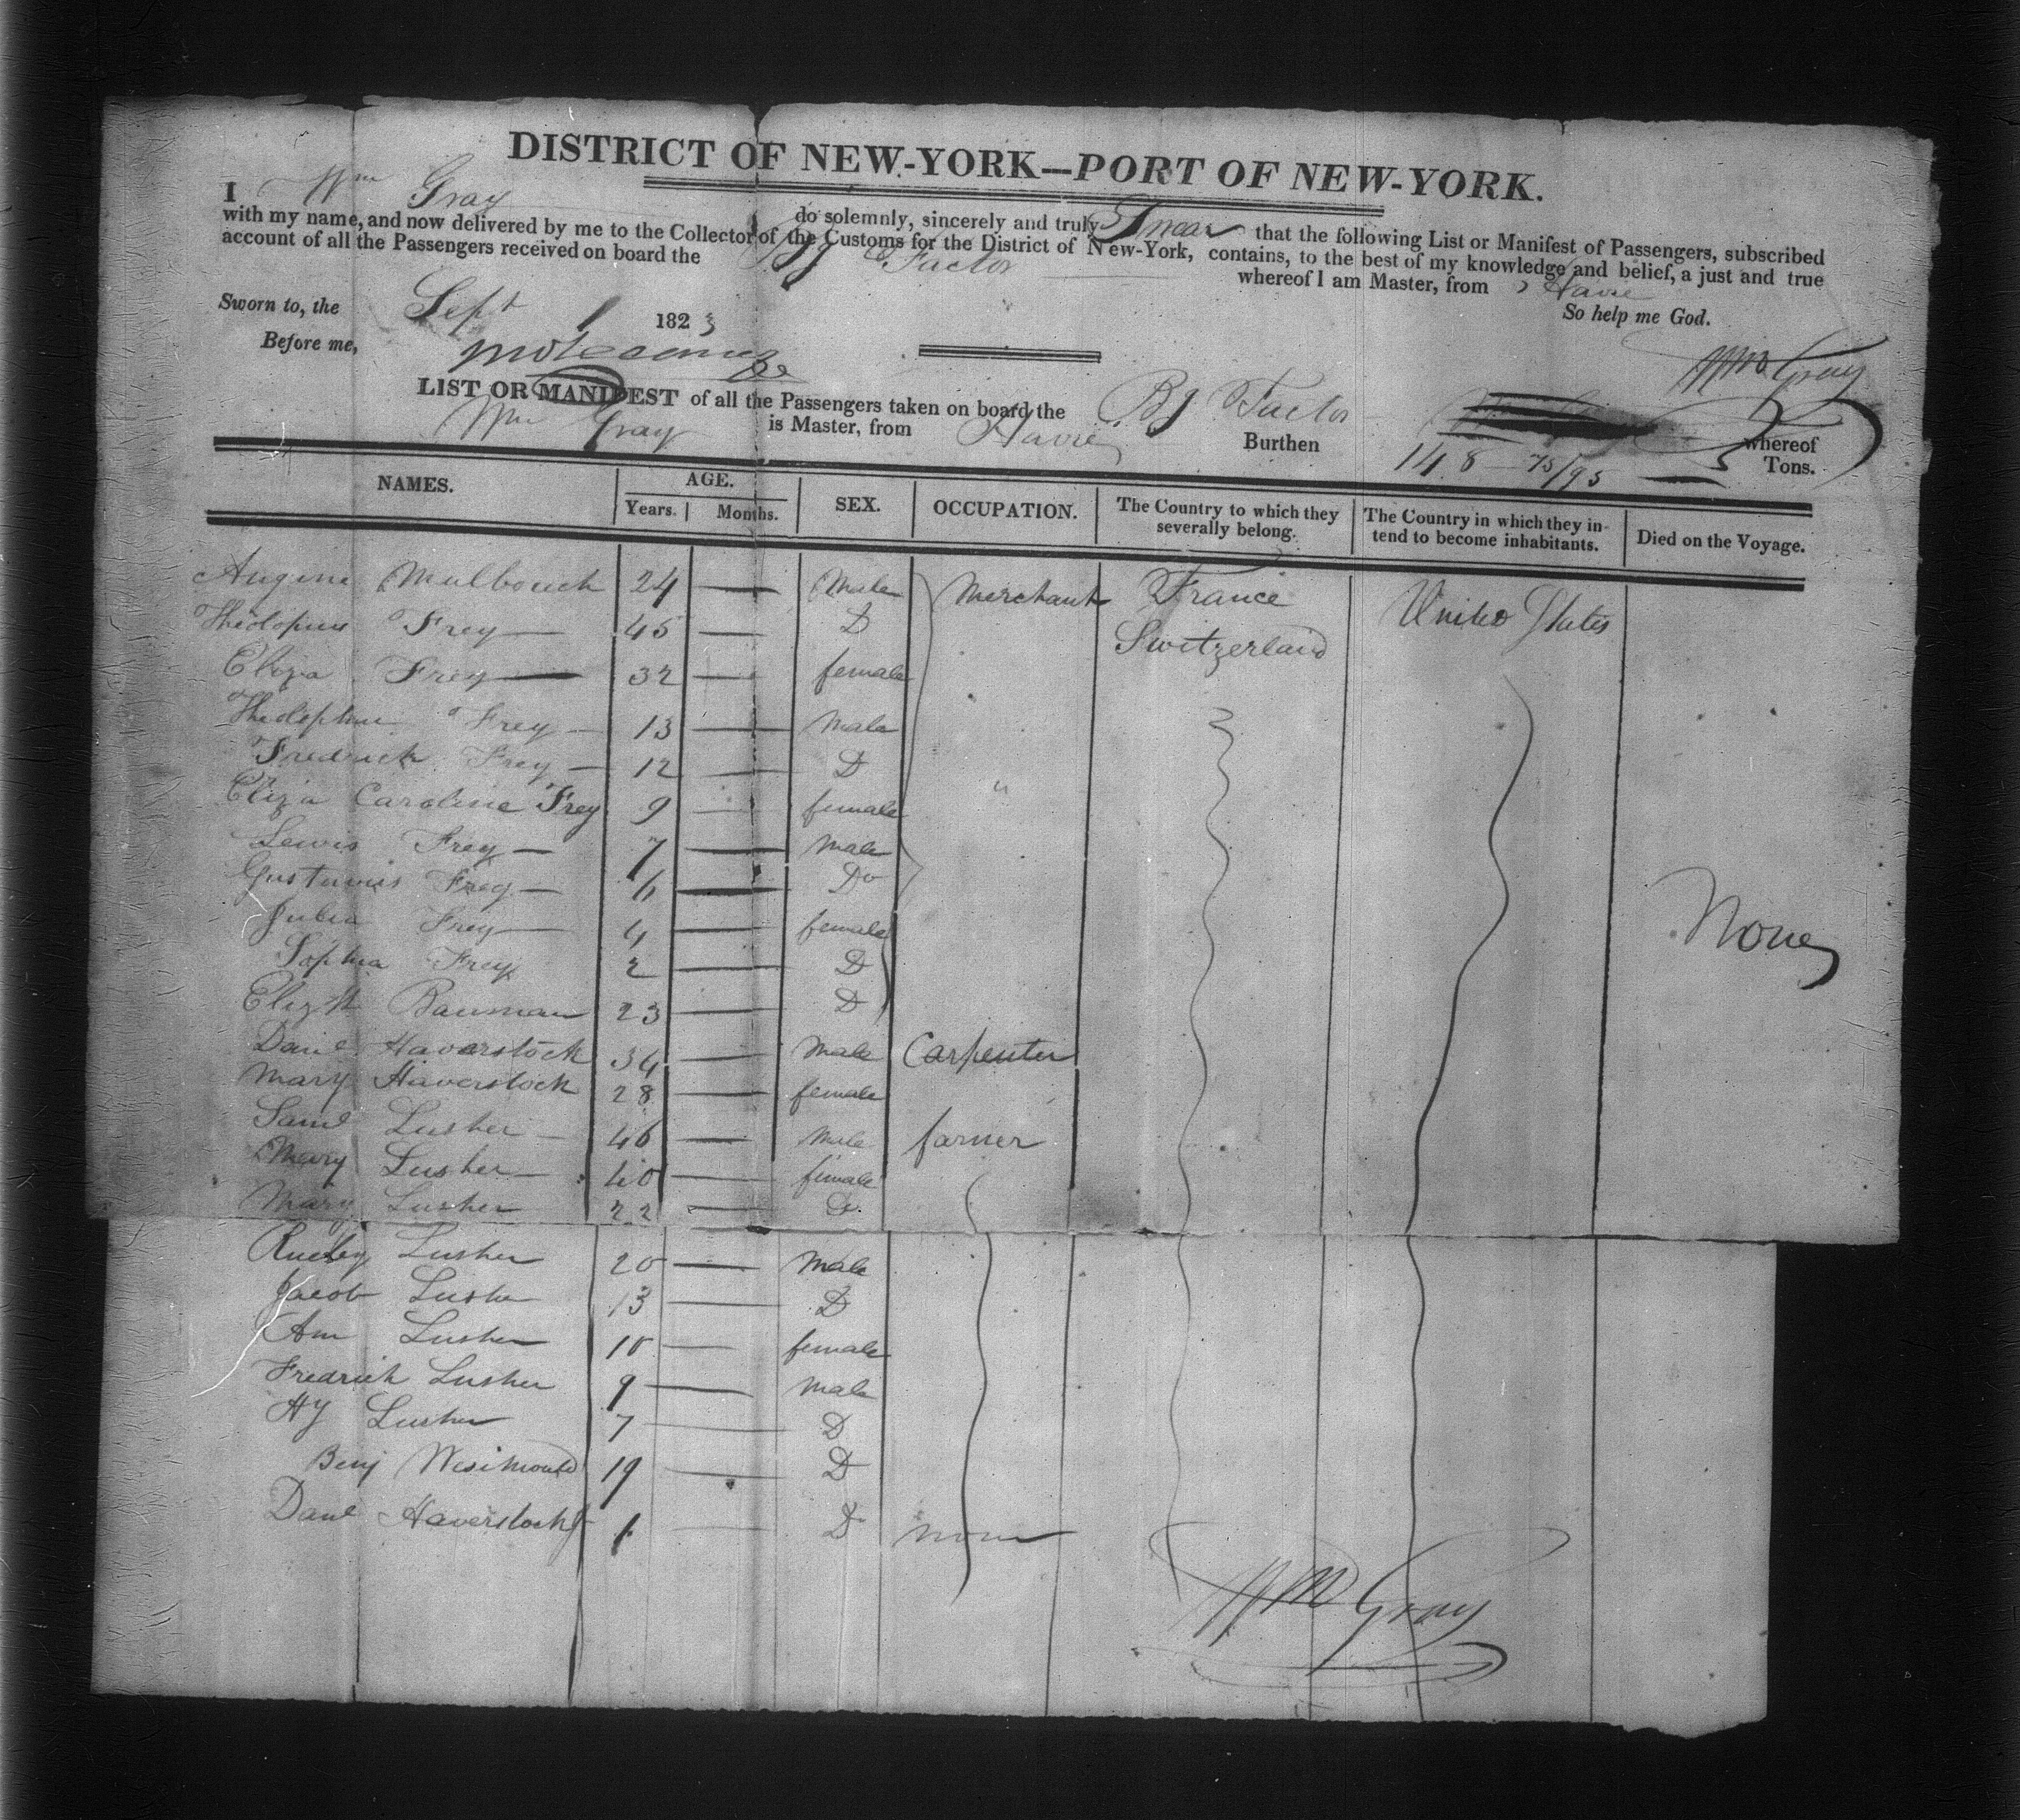 DISTRICT OF NEW-YORK—PORT OF NEW-YORK.
I Wm Gray do solemnly, sincerely and truly Swear that the following List or Manifest of Passengers, subscribed
with my name, and now delivered by me to the Collector of the Customs for the District of New-York, contains, to the best of my knowledge and belief, a just and true
account of all the Passengers received on board the Factor whereof I am Master, from Havre
Sworn to, the Sept 1 1823 So help me God.
Before me, Wm Gray
LIST OR MANIFEST of all the Passengers taken on board the Factor whereof
Wm Gray is Master, from Havre Burthen 148 75/95 Tons.
NAMES. AGE. SEX. OCCUPATION. The Country to which they severally belong. The Country in which they intend to become inhabitants. Died on the Voyage.
Years. Months.
Augine Mulbouch 24 — Male Merchant France United States
Frey — 45 — D Switzerland
Eliza Frey — 32 — female
Frey — 13 — Male
Fredrick Frey — 12 — D
Eliza Caroline Frey 9 — female "
Lewis Frey — 7 — Male
Gustavus Frey — 6 — Do
Julia Frey — 4 — female None
Sophia Frey 2 — D
Elizth Bauman 23 — D
Danl Haverstock 34 — Male Carpenter
Mary Haverstock 28 — female
Saml Lusher — 46 — Male farmer
Mary Lusher — 40 — female
Mary Lusher 22 — D
Lusher 20 — Male
Jacob Lusher 13 — D
Ann Lusher 10 — female
Fredrick Lusher 9 — Male
Hy Lusher 7 — D
Benj 19 — D
Danl Haverstock 1 — D none
Wm Gray